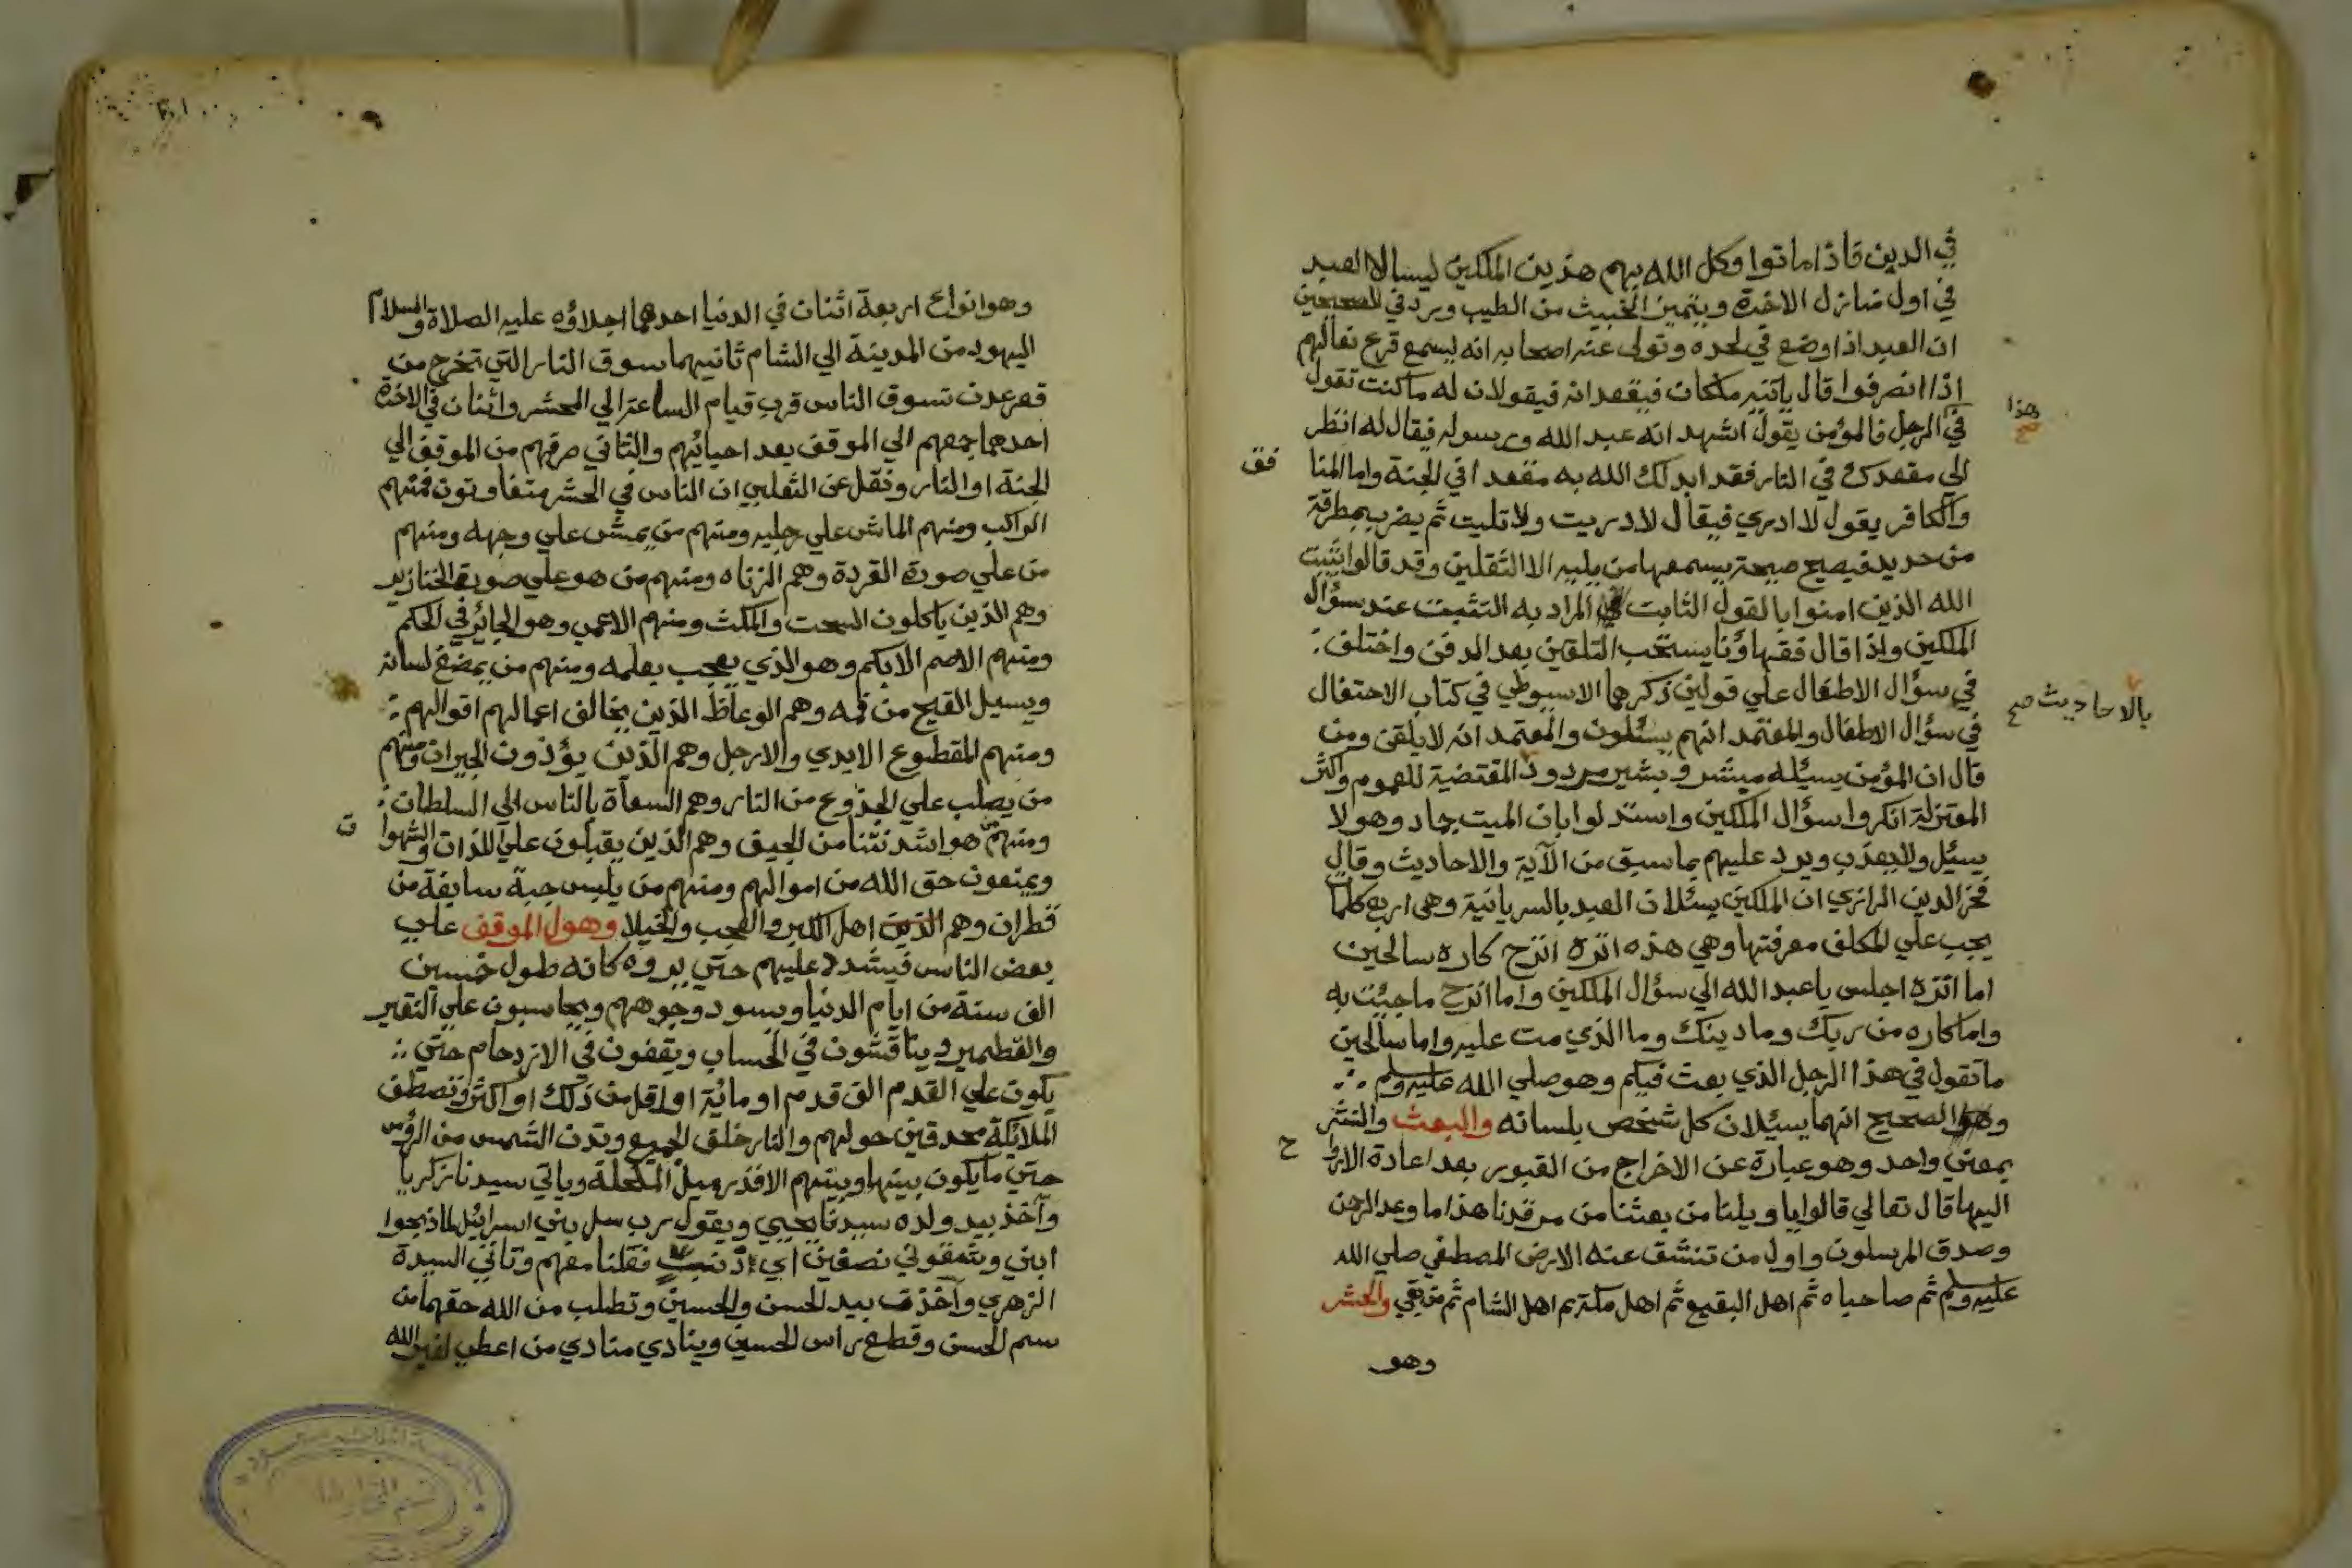 في الدين فاذا ماتوا وكل الله بهم هذين الملكين ليسالا العبد
في اول منازل الاخرة ويتميز الخبيث من الطيب وورد في الصحيحين
ان العبد اذا وضع في لحده وتولى عنه اصحابه انه ليسمع قرع نعالهم
اذا انصرفوا قال ياتيه ملكان فيقعدانه فيقولان له ما كنت تقول
هذا صح
في الرجل فالمؤمن يقول اشهد انه عبد الله ورسوله فيقال له انظر
الي مقعدك في النار فقد ابدلك الله به مقعدا في الجنة واما المنا
فق
والكافر يقول لا ادري فيقال لا دريت ولا تليت ثم يضرب بمطرقة
من حديد فيصيح صيحة يسمعها من يليه الا الثقلين وقد قالوا يثبت
الله الذين امنوا بالقول الثابت المراد به التثبيت عند سؤال
الملكين ولذا قال فقهاؤنا يستحب التلقين بعد الدفن واختلف
في سؤال الاطفال علي قولين ذكرهما الاسيوطي في كتاب الاحتفال
بالاحاديث صح
في سؤال الاطفال والمعتمد انهم يسئلون والمعتمد انه لا يلقن ومن
قال ان المؤمن يسيله مبشر وبشير مردود المقتضية للعموم واكثر
المعتزلة انكروا سؤال الملكين واستدلوا بان الميت جماد وهو لا
يسئل ولا يعذب ويرد عليهم بما سبق من الآية والاحاديث وقال
فخر الدين الرازي ان الملكين يسئلان العبد بالسريانية وهي اربع كلمات
يجب علي المكلف معرفتها وهي هذه اتره اترح كاره سالحين
اما اتره اجلس يا عبد الله الي سؤال الملكين واما اترح ما جئت به
واما كاره من ربك وما دينك وما الذي مت عليه واما سالحين
ما تقول في هذا الرجل الذي بعث فيكم وهو صلي الله عليه وسلم
والصحيح انهما يسئلان كل شخص بلسانه والبعث والنشر
بمعني واحد وهو عبارة عن الاخراج من القبور بعد اعادة الاروا
ح
اليها قال تعالي قالوا يا ويلنا من بعثنا من مرقدنا هذا ما وعد الرحمن
وصدق المرسلون واول من تنشق عنه الارض المصطفي صلي الله
عليه وسلم ثم صاحباه ثم اهل البقيع ثم اهل مكة ثم اهل الشام ثم من بقي والحشر
وهو
وهو انواع اربعة اثنان في الدنيا احدهما اجلاؤه عليه الصلاة والسلام
اليهود من المدينة الي الشام ثانيهما سوق النار التي تخرج من
قعر عدن تسوق الناس قرب قيام الساعة الي المحشر واثنان في الاخرة
احدهما جمعهم الي الموقف بعد احيائهم والثاني صرفهم من الموقف الي
الجنة او النار ونقل عن الثعلبي ان الناس في الحشر متفاوتون فمنهم
الراكب ومنهم الماش علي رجليه ومنهم من يمش علي وجهه ومنهم
من علي صورة القردة وهم الزناه ومنهم من هو علي صورة الخنازير
وهم الذين ياكلون السحت والمكث ومنهم الاعمي وهو الجائر في الحكم
ومنهم الاصم الابكم وهو الذي يعجب بعلمه ومنهم من يمضغ لسانه
ويسيل القيح من فمه وهم الوعاظ الذين يخالف اعمالهم اقوالهم
ومنهم المقطوع الايدي والارجل وهم الذين يؤذون الجيران ومنهم
من يصلب علي الجذوع من النار وهم السعاة بالناس الي السلطان
ومنهم من هو اشد نتنا من الجيف وهم الذين يقبلون علي اللذات والشهوا
ت
ويمنعون حق الله من اموالهم ومنهم من يلبس جبة سابغة من
قطران وهم الذين اهل الكبر والعجب والخيلا وهول الموقف علي
بعض الناس فيشدد عليهم حتي يروه كانه طول خمسين
الف سنة من ايام الدنيا ويسود وجوههم ويحاسبون علي النقير
والقطمير ويناقشون في الحساب ويقفون في الازدحام حتي
يكون علي القدم الف قدم او مائة او اقل من ذلك او اكثر وتصطف
الملائكة محدقين حولهم والنار خلف الجميع وتدن الشمس من الرؤس
حتي ما يكون بينها وبينهم الا قدر ميل المكحلة وياتي سيدنا زكريا
وآخذ بيد ولده سيدنا يحيي ويقول رب سل بني اسرائيل لماذبحوا
ابني وشقوني نصفين اي فعلنا معهم وتاتي السيدة
الزهري وآخذت بيد الحسن والحسين وتطلب من الله حقهما من
سم الحسن وقطع راس الحسين وينادي منادي من اعطي لغير الله